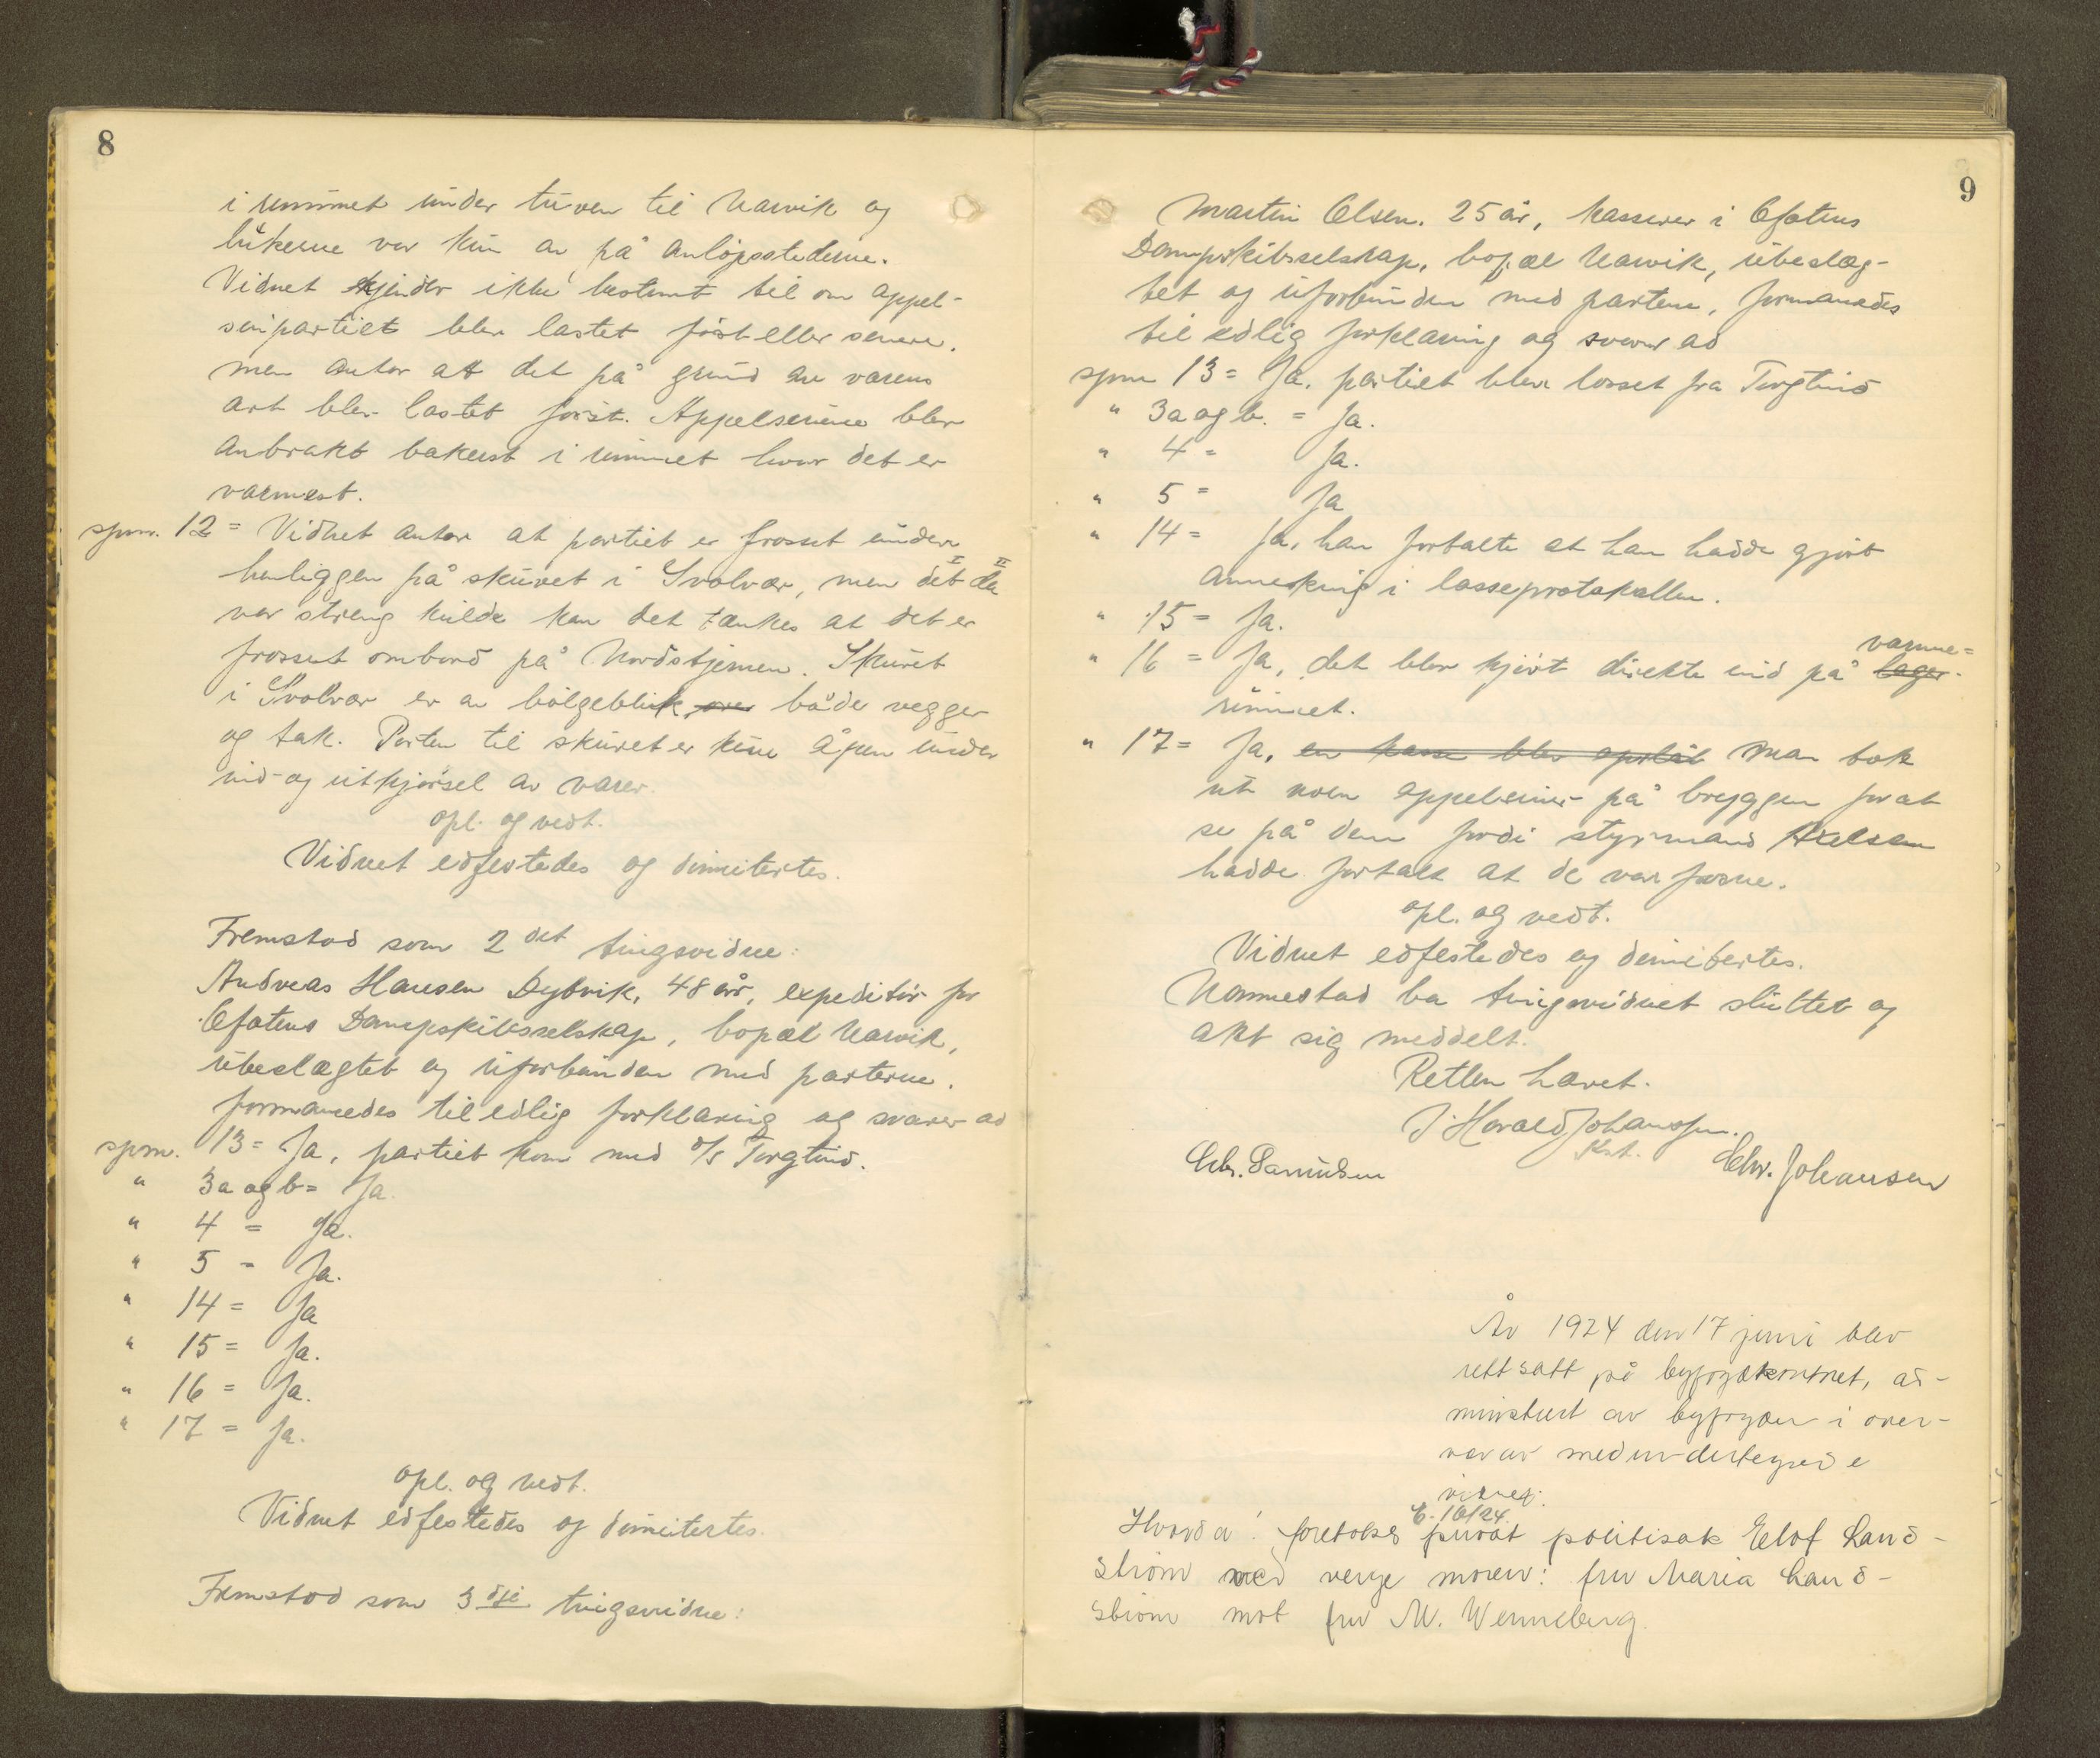 8
i rummet under turen til Narvik og
lukerne var kun av på anløpsstederne.
Vidnet kjender ikke bestemt til om appel-
sinpartiet blev lastet først eller senere.
men antar att det på grund av varens
art blev lastet først. Appelsinene blev
anbrakt bakerst i rummet hvor det er
varmest.
spm. 12 = Vidnet antar at partiet er frosset under
henliggen på skuret i Svolvær, men det da
var streng kulde kan det tænkes at det er
frosset ombord på Nordstjernen. Skuret
i Svolvær er av bølgeblik, både vegger
og tak. Porten til skuret er kun åpen under
ind- og utkjørsel av varer.
opl. og vedt.
Vidnet edfestedes og dimitertes.
Fremstod som 2det tingsvidne:
Andreas Hansen Dybvik, 48 år, expeditør for
Ofotens Dampskibsselskap, bopæl Narvik,
ubeslægtet og uforbunden med parterne.
formanedes til edlig forklaring og svarer ad
spm. 13 = Ja, partiet kom med d/s Torgtind.
" 3a og b = Ja.
" 4 = Ja.
" 5 = Ja.
" 14 = Ja
" 15 = Ja.
" 16 = Ja.
" 17 = Ja.
opl. og vedt.
Vidnet edfestedes og dimitertes.
Fremstod som 3dje tingsvidne:
9
Martin Olsen. 25 år, kasserer i Ofotens
Dampskibsselskap, bopæl Narvik, ubeslæg-
tet og uforbunden med partene, formanedes
til edlig forklaring og svarer ad
spm 13 = Ja, partiet blev losset fra Torgtind
" 3a og b. = Ja.
" 4 = Ja.
" 5 = Ja
" 14 = Ja, han fortalte at han hadde gjort
anmerkning i losseprotokollen.
" 15 = Ja.
varme-
" 16 = Ja, det blev kjørt direkte ind på lager-
rummet.
" 17 = Ja, en kasse blev opslåt man tok
ut noen appelsiner på bryggen for at
se på dem fordi styrmand
hadde fortalt at de var frosne.
opl. og vedt.
Vidnet edfestedes og dimitertes.
Normestad ba tingsvidnet sluttet og
akt sig meddelt.
Retten hævet.
J. Harald Johanssen.
Kst.
Chr. Samuelsen Chr. Johansen
År 1924 den 17 juni blev
rett satt på byfogdkontoret, ad-
ministrert av byfogden i over-
vær av medundertegnede
vidner.
E. 16/24.
Hvorda! foretokes privat politisak Elof Land-
strøm med verge moren: fru Maria Land-
strøm mot fru M. Wenneberg.